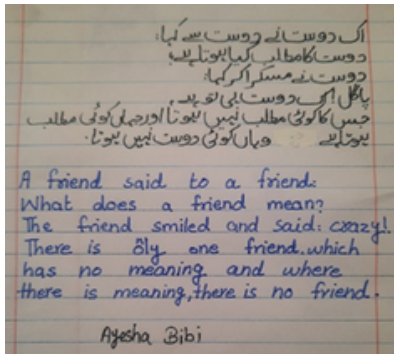 اک دوست نے دوست سے کہا:
دوست کا مطلب کیا ہوتا ہے؟
دوست نے مسکرا کر کہا:
پاگل! اک دوست ہی تو ہے،
جس کا کوئی مطلب نہیں ہوتا اور جہاں کوئی مطلب
ہوتا ہے وہاں کوئی دوست نہیں ہوتا۔
A friend said to a friend:
What does a friend mean?
The friend smiled and said: crazy!
There is ôly one friend.which
has no meaning and where
there is meaning,there is no friend.
Ayesha Bibi